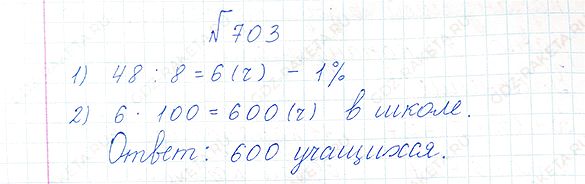 №703
1) 48 : 8 = 6 (ч) – 1%
2) 6 · 100 = 600 (ч) в школе.
Ответ: 600 учащихся.